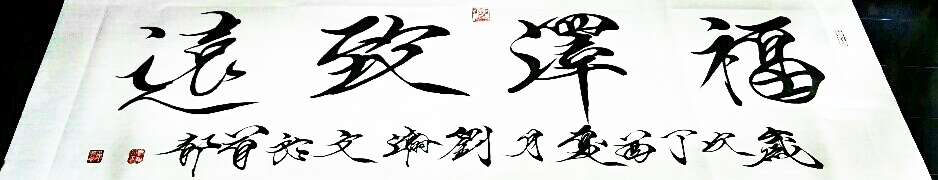 福澤致遠
歲次丁酉夏月劉瀚文於首都